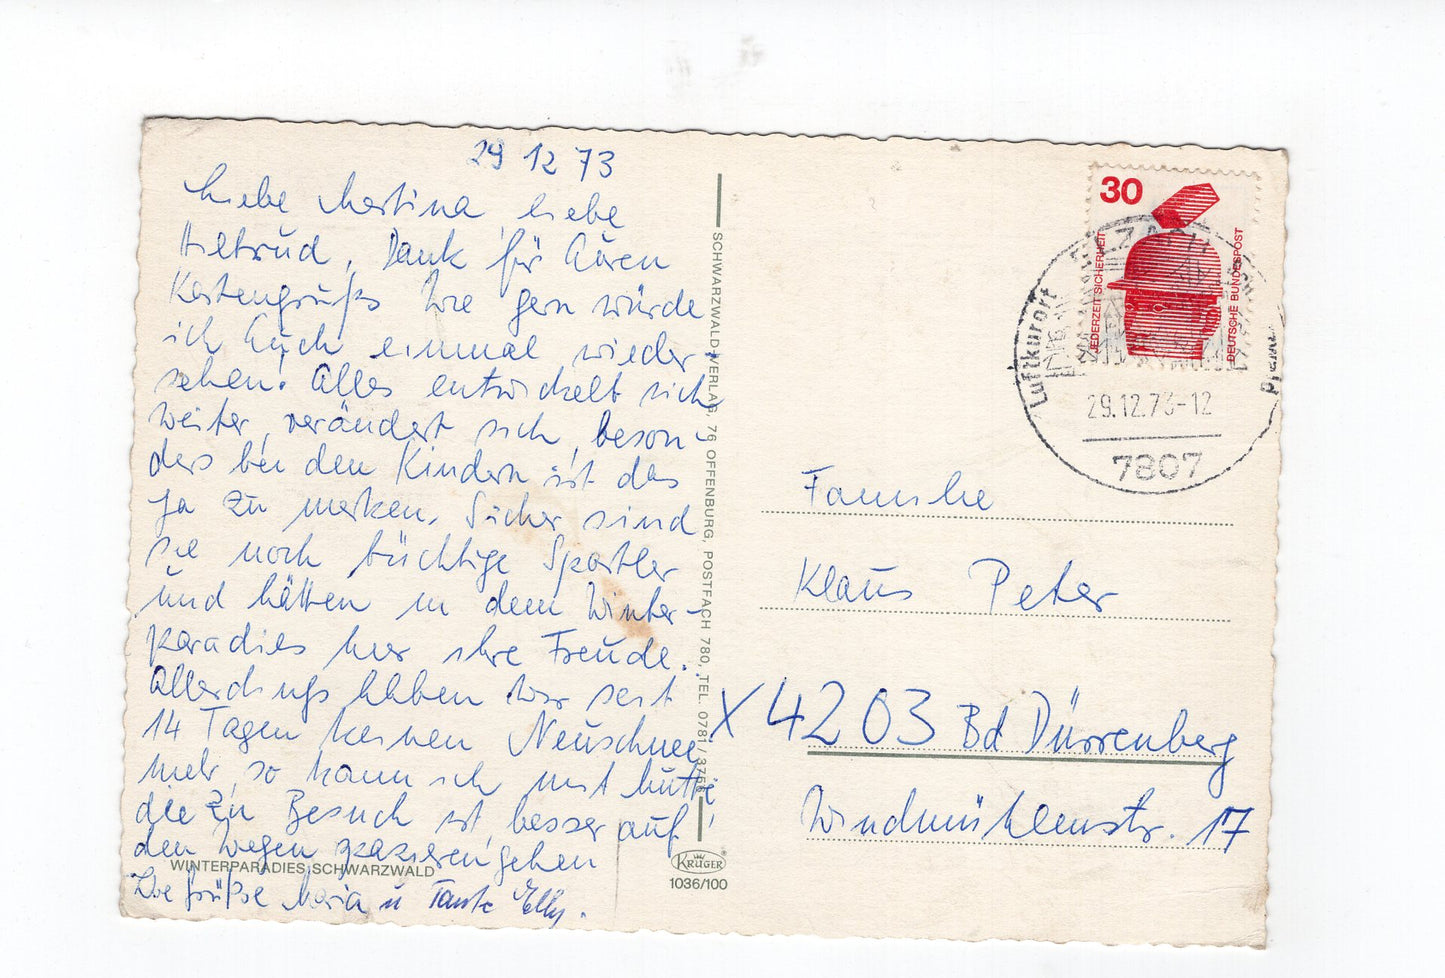 29 12 73
Liebe Martina liebe
Hiltrud, Dank für Euren
Kartengruß. Wie gern würde
ich Euch einmal wieder-
sehen. Alles entwickelt sich
weiter, verändert sich, beson-
ders bei den Kindern ist das
ja zu merken. Sicher sind
sie noch tüchtige Sportler
und hätten in dem Winter-
paradies hier ihre Freude.
Allerdings haben wir seit
14 Tagen keinen Neuschnee
mehr, so kann ich mit Mutti,
die zu Besuch ist, besser auf
den Wegen spazierengehen
Liebe Grüße Maria u Tante Elly.
WINTERPARADIES SCHWARZWALD
SCHWARZWALD-VERLAG, 76 OFFENBURG, POSTFACH 780, TEL. 0781/3756
KRÜGER
1036/100
30
JEDERZEIT SICHERHEIT
DEUTSCHE BUNDESPOST
Luftkurort
29.12.73-12
7807
Familie
Klaus Peter
X 4203 Bd Dürrenberg
Windmühlenstr. 17